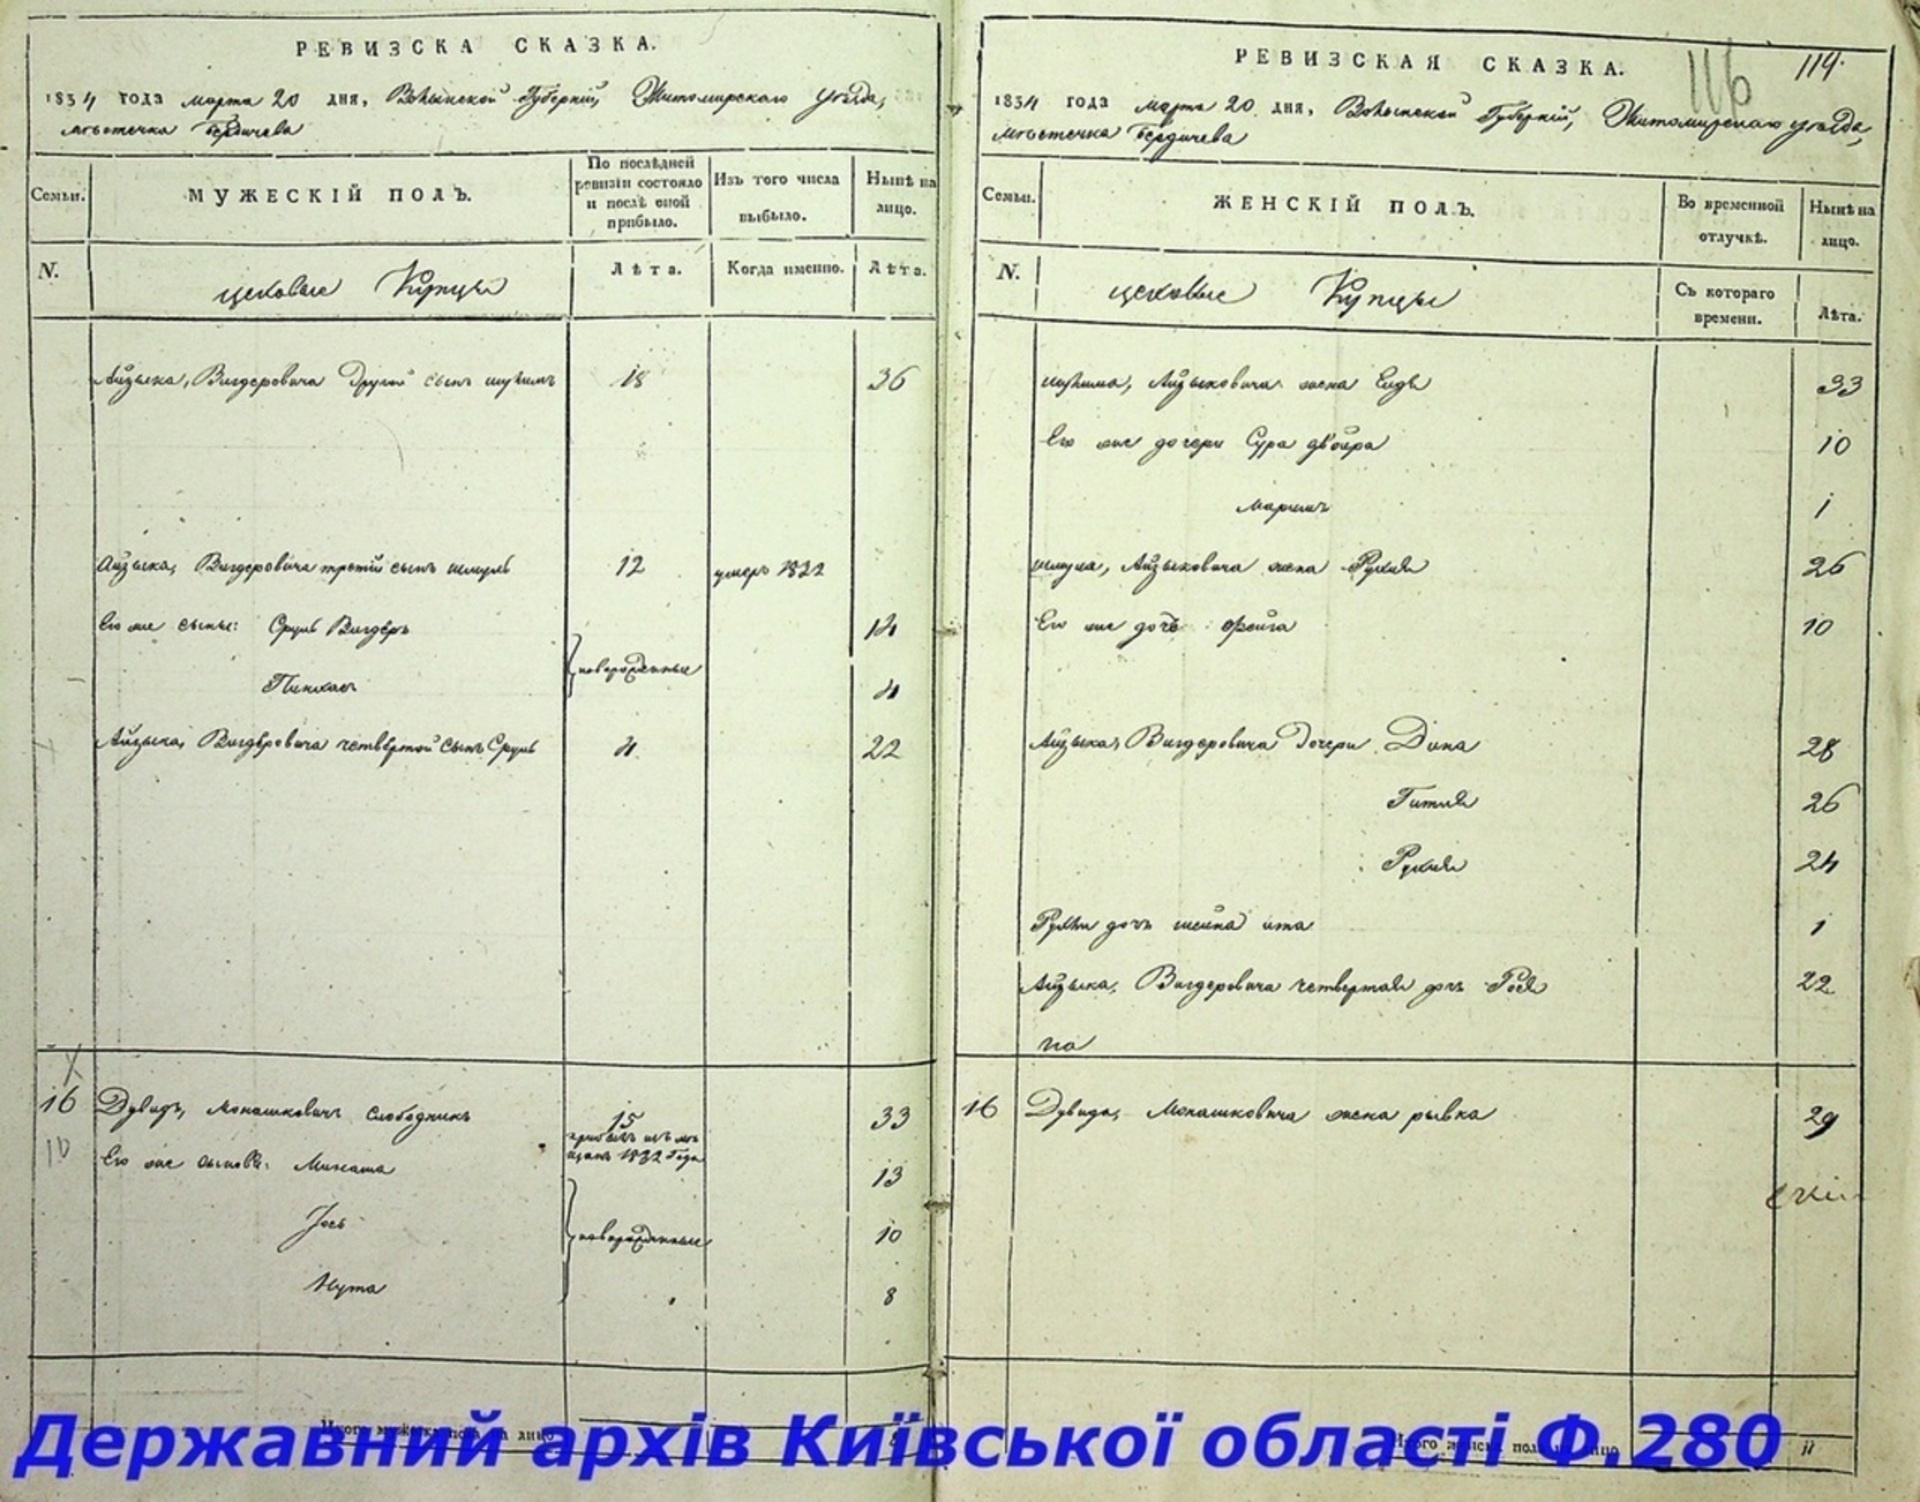 РЕВИЗСКА СКАЗКА.
1834 года марта 20 дня, Волынской Губерніи, Житомирскаго уезда,
местечка Бердичева
Семьи.
МУЖЕСКІЙ ПОЛЪ.
По послѣдней ревизіи состояло и послѣ оной прибыло.
Изъ того числа выбыло.
Нынѣ на лицо.
N.
цеховые Купцы
Лѣта.
Когда именно.
Лѣта.
Айзыка, Вигдеровича Другой сынъ 18 36
Айзыка, Вигдеровича третій сынъ шмуль 12 умеръ 1832
Его же сыны: Сруль Вигдеръ 14
новорожденные
Пинхасъ 4
Айзыка, Вигдеровича четвертой сынъ Сруль 4 22
16 Дувидъ, Монашковичъ Слободникъ 15 33
10
1832 Года
Его же сыновя: Монаша 13
Іось 10
новорожденные
Нута 8
Итого мужеска пола на лицо
РЕВИЗСКАЯ СКАЗКА.
116 114.
1834 года марта 20 дня, Волынской Губерніи, Житомирскаго уезда,
местечка Бердичева
Семьи.
ЖЕНСКІЙ ПОЛЪ.
Во временной отлучкѣ.
Нынѣ на лицо.
N.
цеховые Купцы
Съ котораго времени.
Лѣта.
Айзыковича жена 33
Его же дочери Сура двойра 10
Маримъ 1
шмуля, Айзыковича жена Рухля 26
Его же дочь Фейга 10
Айзыка, Вигдеровича Дочери Дина 28
Гитля 26
Рухля 24
Рухли дочь шейна ита 1
Айзыка, Вигдеровича четвертая дочь Рейз 22
на
16 Дувида, Монашковича жена рывка 29
Итого женска пола на лицо 11
Державний архів Київської області Ф.280